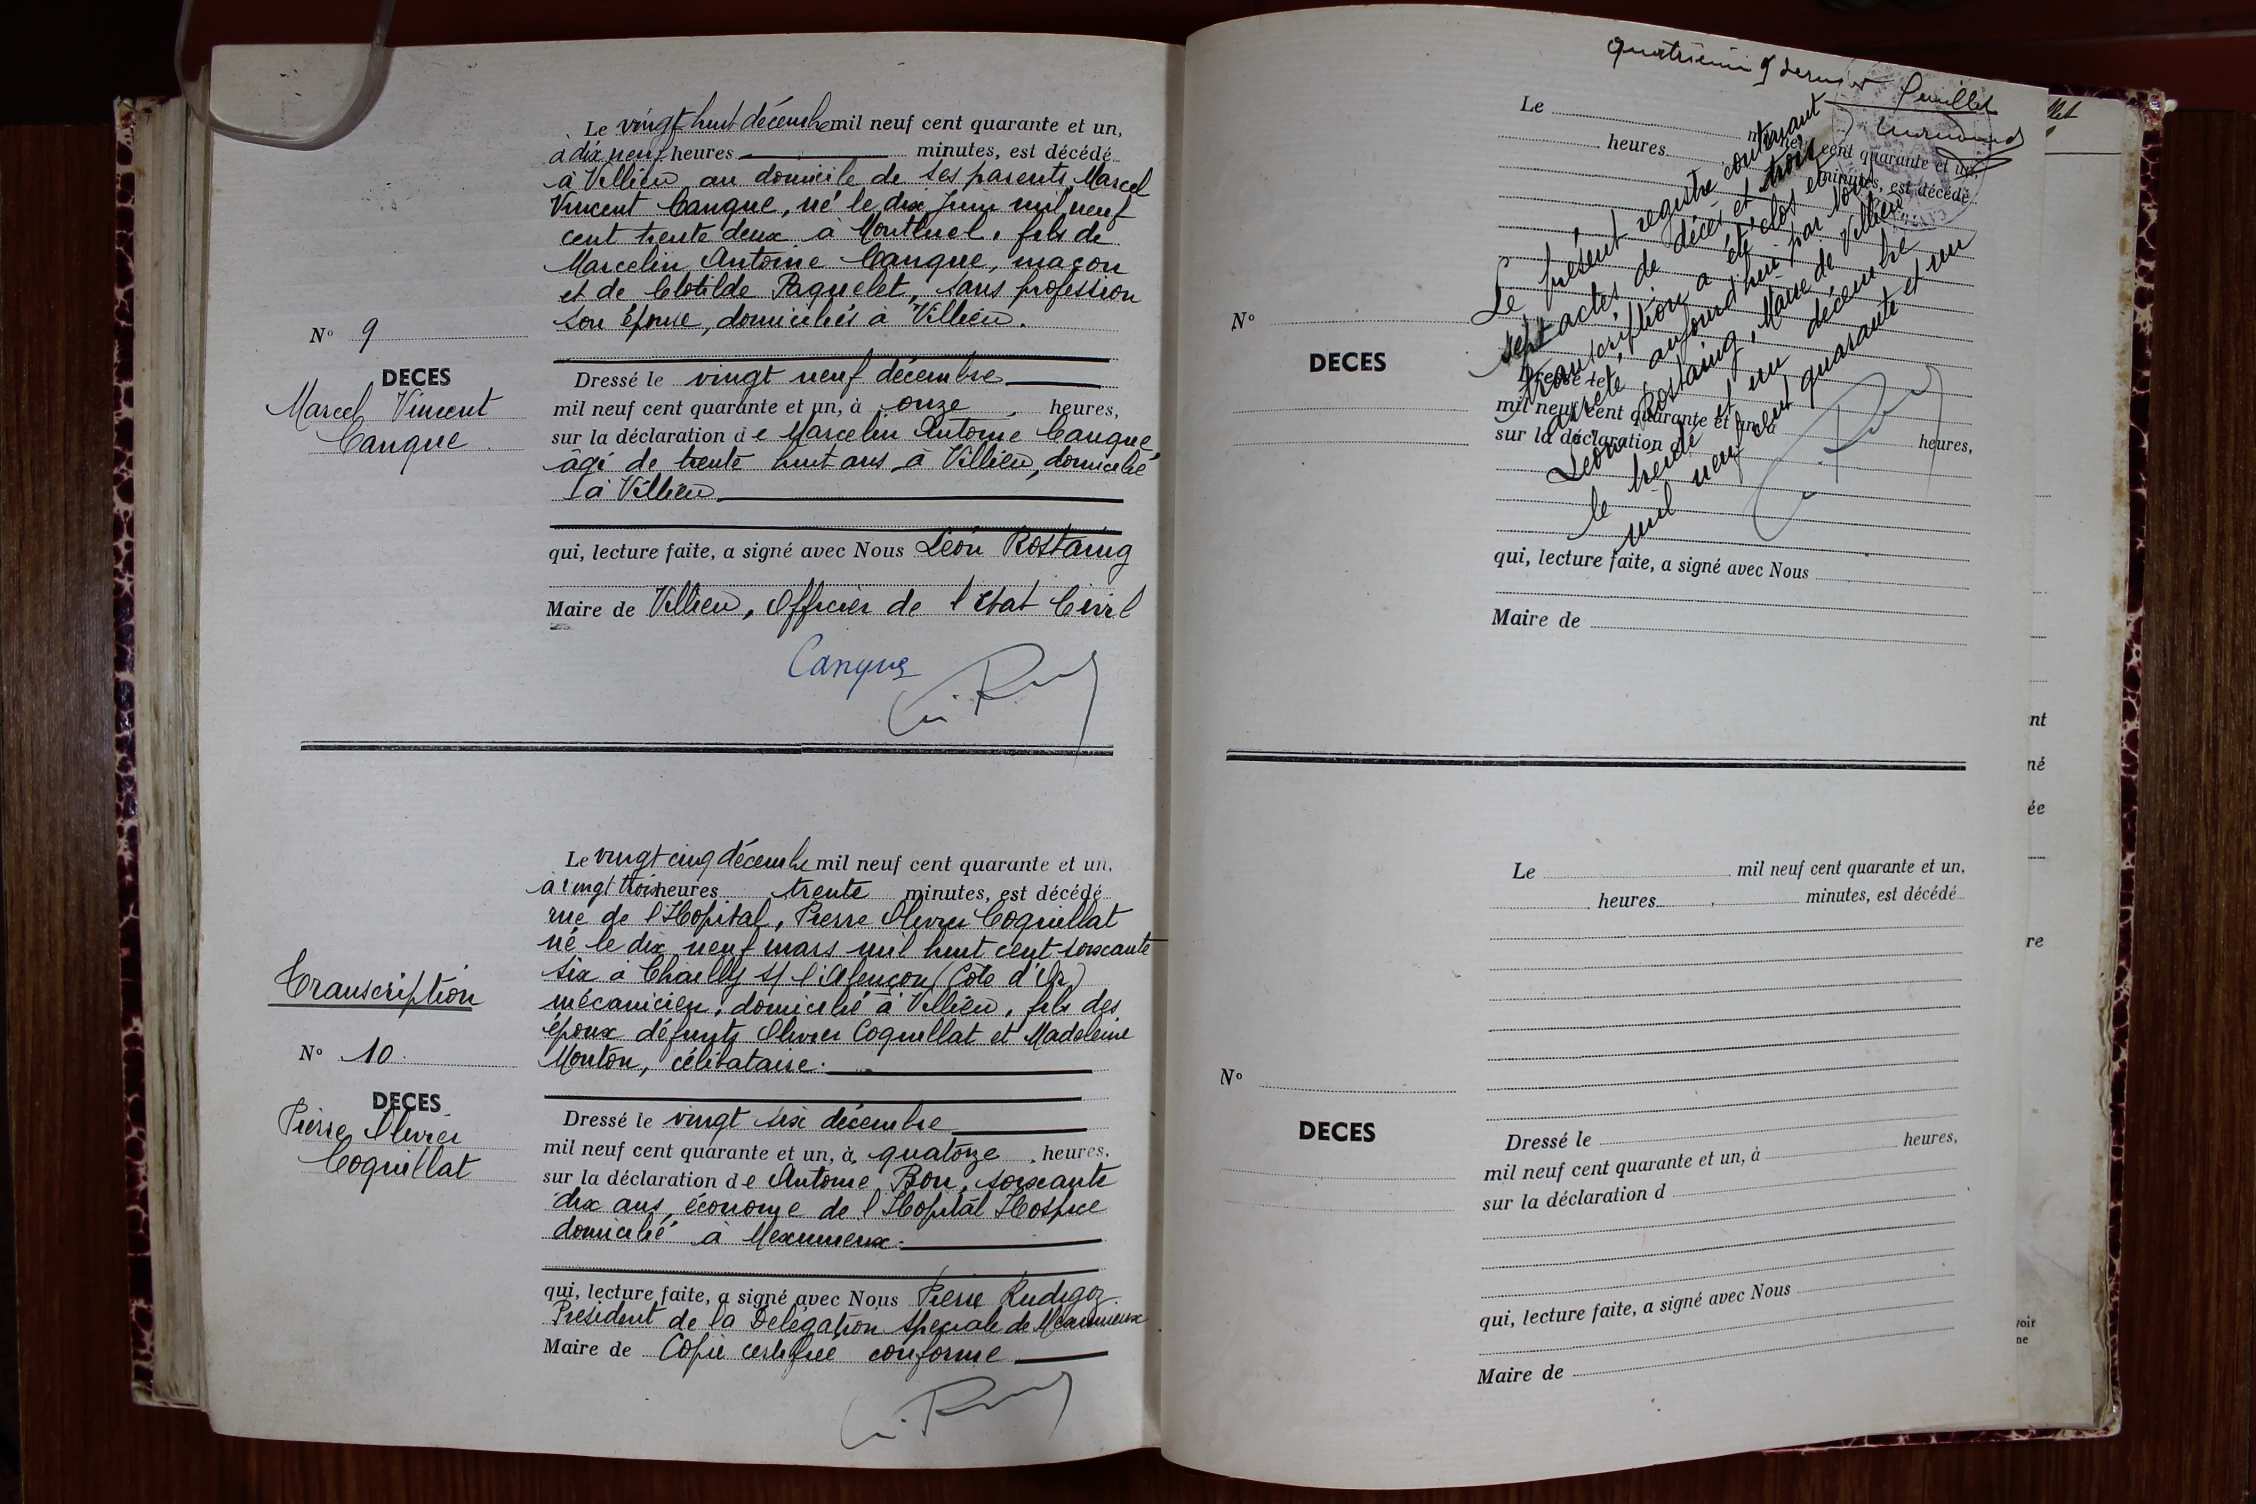 Le vingt huit décembre mil neuf cent quarante et un,
à dix neuf heures minutes, est décédé
à Villieu au domicile de ses parents, Marcel
Vincent Canque, né le dix juin mil neuf
cent trente deux à Montluel, fils de
Marcelin Antoine Canque, maçon
et de Clotilde Paquelet, sans profession
son épouse, domiciliés à Villieu.
N° 9
DECES
Marcel Vincent
Canque
Dressé le vingt neuf décembre
mil neuf cent quarante et un, à onze heures,
sur la déclaration de Marcelin Antoine Canque,
âgé de trente huit ans, à Villieu, domicilié
à Villieu
qui, lecture faite, a signé avec Nous Léon Rostaing
Maire de Villieu, Officier de l'Etat Civil
Canque
Le vingt cinq décembre mil neuf cent quarante et un,
à vingt trois heures trente minutes, est décédé
rue de l'Hopital, Pierre Olivier Coquillat
né le dix neuf mars mil huit cent soixante
six à Chailly s/ l'Alençon (Côte d'Or)
mécanicien, domicilié à Villieu, fils des
époux défunts Olivier Coquillat et Madeleine
Mouton, célibataire.
Transcription
N° 10
DECES
Pierre Olivier
Coquillat
Dressé le vingt six décembre
mil neuf cent quarante et un, à quatorze heures,
sur la déclaration de Antoine Bon, soixante
dix ans, économe de l'Hopital Hospice
domicilié à Meximieux.
qui, lecture faite, a signé avec Nous Pierre Rudigoz
Président de la Délégation spéciale de Meximieux
Maire de Copie certifiée conforme
quatrième et dernier feuillet
Le mil neuf cent quarante et un,
heures minutes, est décédé
Le présent registre contenant
sept actes de décès et trois
transcriptions a été clos et
arrêté aujourd'hui par Nous
Léon Rostaing, Maire de Villieu
le trente et un décembre
mil neuf cent quarante et un
N°
DECES
Dressé le
mil neuf cent quarante et un, à heures,
sur la déclaration d
qui, lecture faite, a signé avec Nous
Maire de
Le mil neuf cent quarante et un,
heures minutes, est décédé
N°
DECES
Dressé le
mil neuf cent quarante et un, à heures,
sur la déclaration d
qui, lecture faite, a signé avec Nous
Maire de
nt
né
ée
re
voir
ne